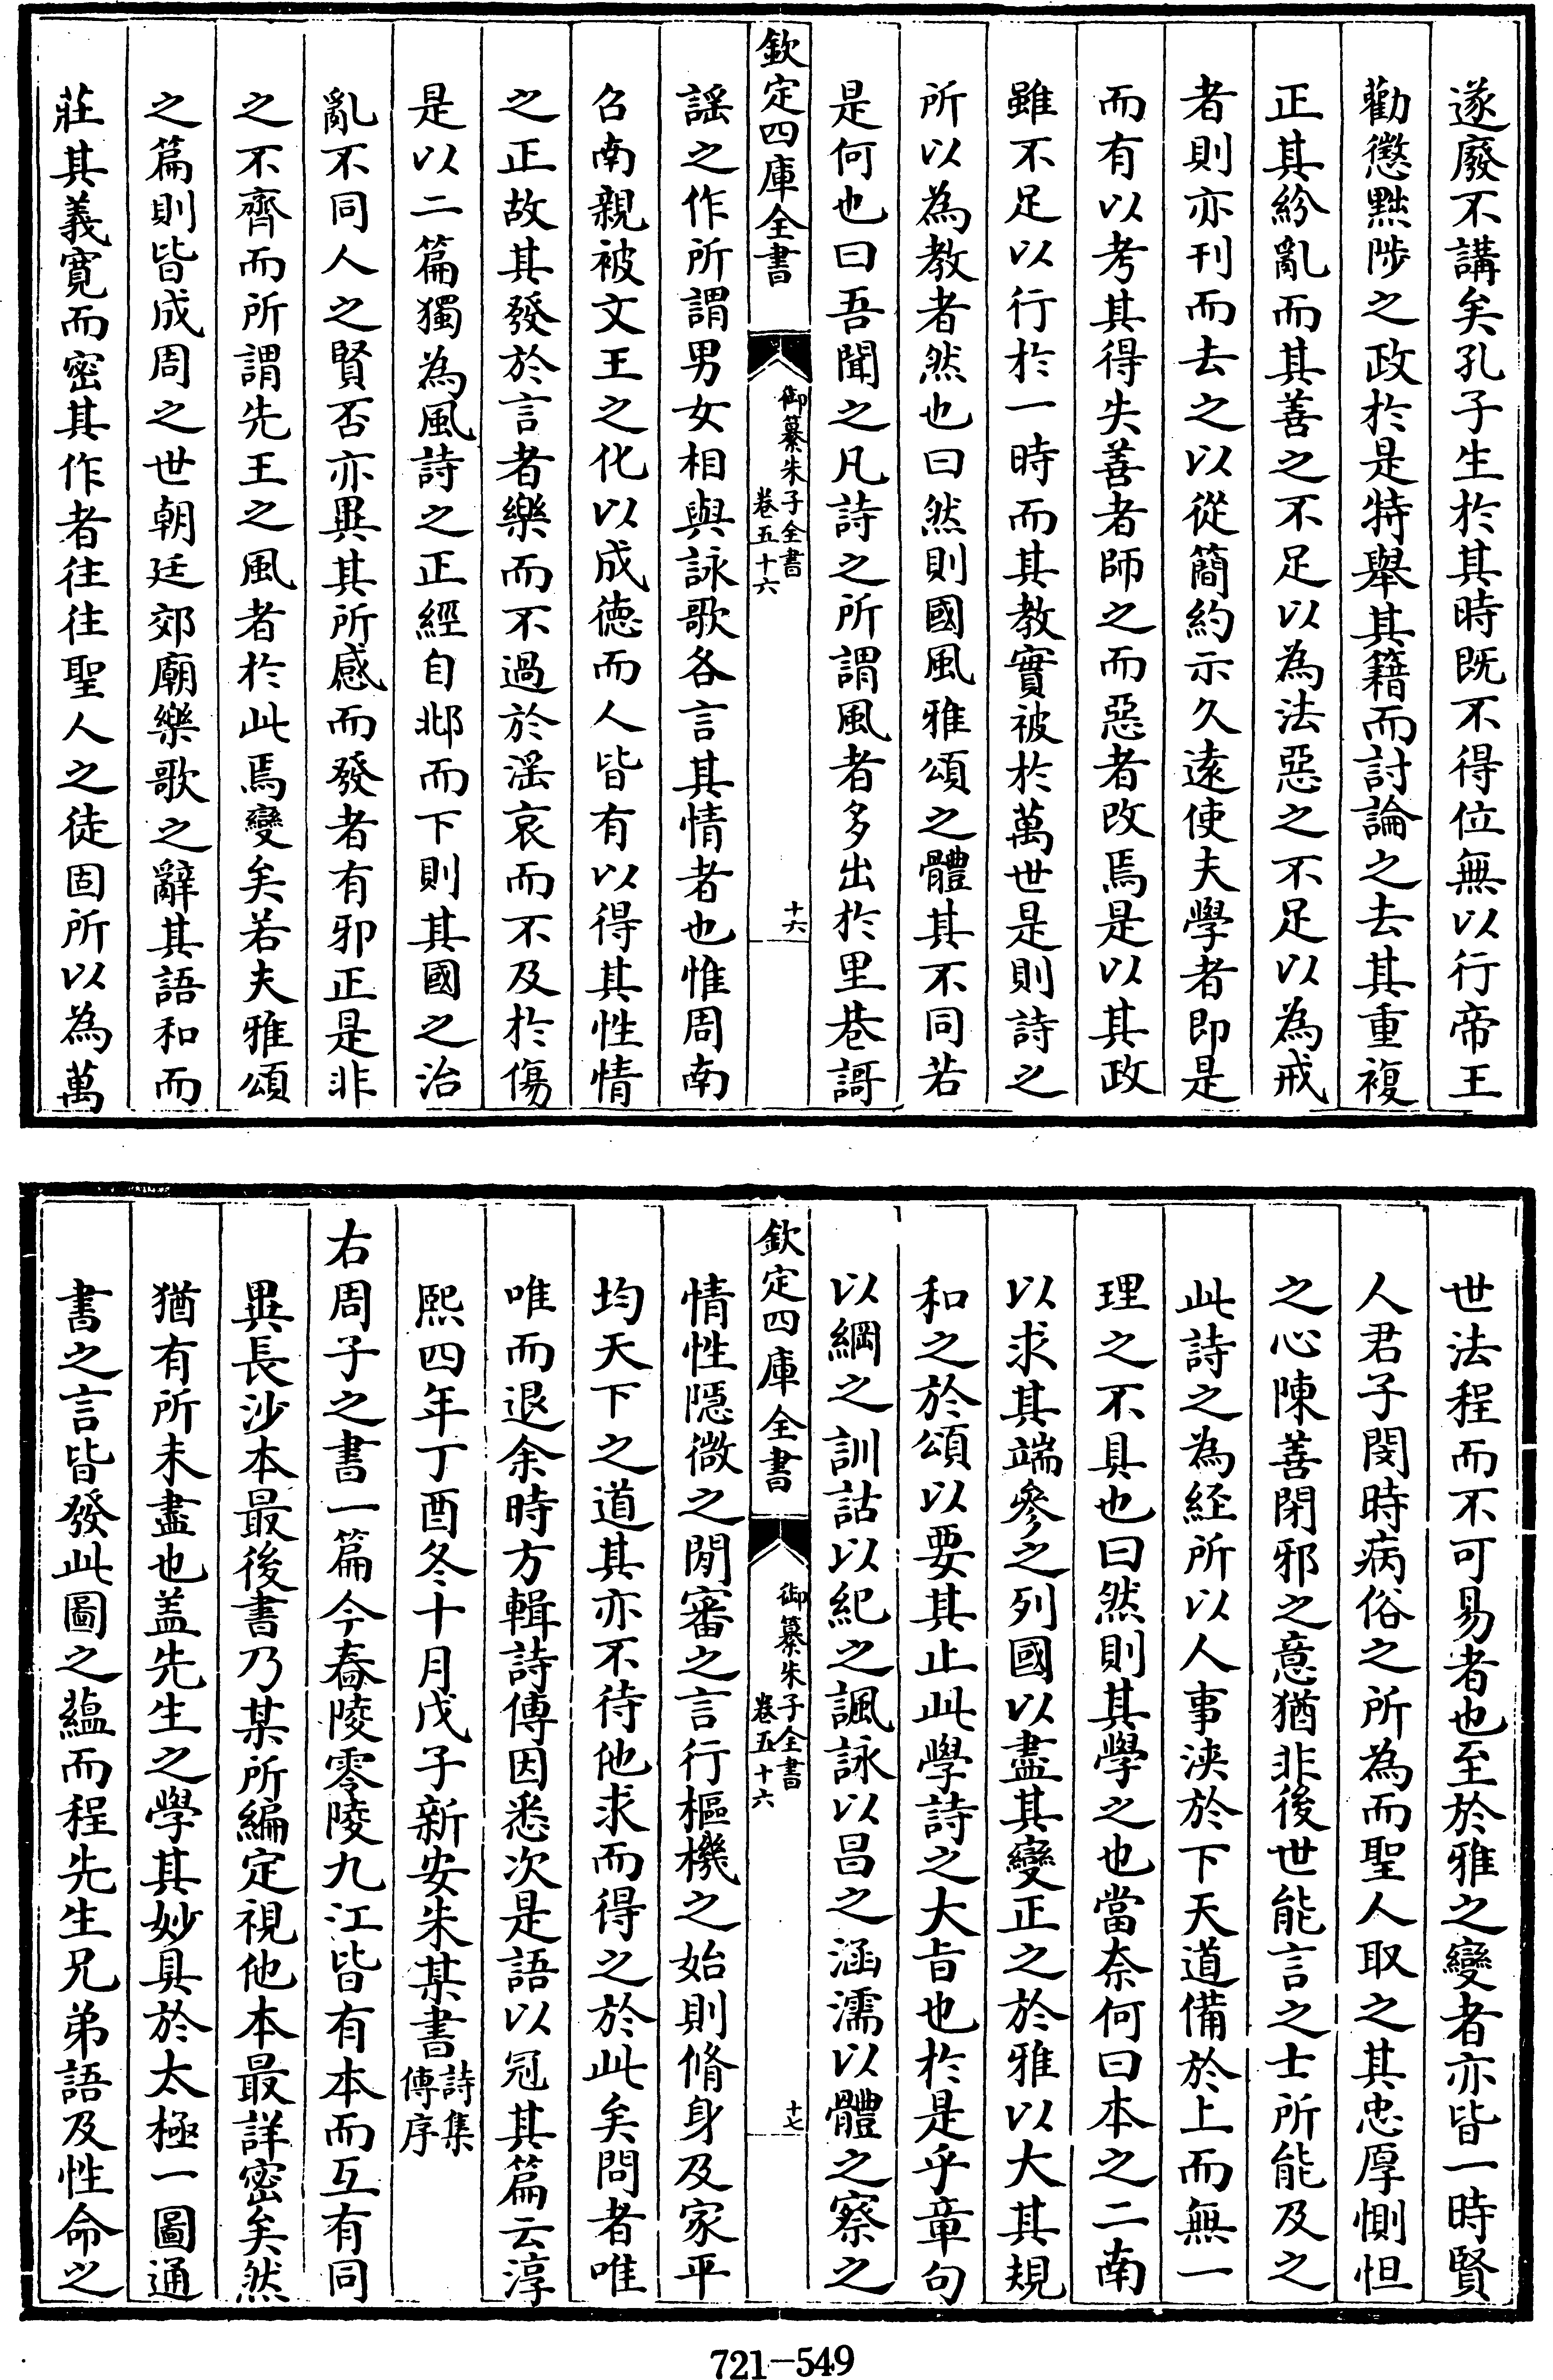 遂廢不講矣孔子生於其時既不得位無以行帝王
勸懲黜陟之政於是特舉其籍而討論之去其重複
正其紛亂而其善之不足以為法惡之不足以為戒
者則亦刊而去之以從簡約示久遠使夫學者即是
而有以考其得失善者師之而惡者改焉是以其政
雖不足以行於一時而其教實被於萬世是則詩之
所以為教者然也曰然則國風雅頌之體其不同若
是何也曰吾聞之凡詩之所謂風者多出於里巷謌
欽定四庫全書
御纂朱子全書
卷五十六
十六
謡之作所謂男女相與詠歌各言其情者也惟周南
召南親被文王之化以成德而人皆有以得其性情
之正故其發於言者樂而不過於滛哀而不及於傷
是以二篇獨為風詩之正經自邶而下則其國之治
亂不同人之賢否亦異其所感而發者有邪正是非
之不齊而所謂先王之風者於此焉變矣若夫雅頌
之篇則皆成周之世朝廷郊廟樂歌之辭其語和而
莊其義寛而密其作者往往聖人之徒固所以為萬
世法程而不可易者也至於雅之變者亦皆一時賢
人君子閔時病俗之所為而聖人取之其忠厚惻怛
之心陳善閉邪之意猶非後世能言之士所能及之
此詩之為経所以人事浹於下天道備於上而無一
理之不具也曰然則其學之也當奈何曰本之二南
以求其端參之列國以盡其變正之於雅以大其規
和之於頌以要其止此學詩之大旨也於是乎章句
以綱之訓詁以紀之諷詠以昌之涵濡以體之察之
欽定四庫全書
御纂朱子全書
卷五十六
十七
情性隱微之閒審之言行樞機之始則脩身及家平
均天下之道其亦不待他求而得之於此矣問者唯
唯而退余時方輯詩傳因悉次是語以冠其篇云淳
熙四年丁酉冬十月戊子新安朱某書詩集傳序
右周子之書一篇今舂陵零陵九江皆有本而互有同
異長沙本最後書乃某所編定視他本最詳密矣然
猶有所未盡也盖先生之學其妙具於太極一圖通
書之言皆發此圖之藴而程先生兄弟語及性命之
721-549